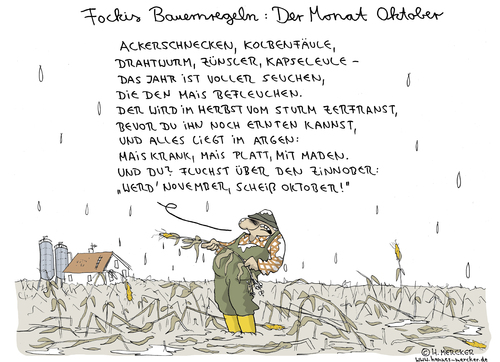 Fockis Bauernregeln: Der Monat Oktober
ACKERSCHNECKEN, KOLBENFÄULE,
DRAHTWURM, ZÜNSLER, KAPSELEULE –
DAS JAHR IST VOLLER SEUCHEN,
DIE DEN MAIS BEFLEUCHEN.
DER WIRD IM HERBST VOM STURM ZERFRANST,
BEVOR DU IHN NOCH ERNTEN KANNST,
UND ALLES LIEGT IM ARGEN:
MAIS KRANK, MAIS PLATT, MIT MADEN.
UND DU? FLUCHST ÜBER DEN ZINNOBER:
„WERD' NOVEMBER, SCHEIß OKTOBER!"
© H. MERCKER
www.hannes-mercker.de